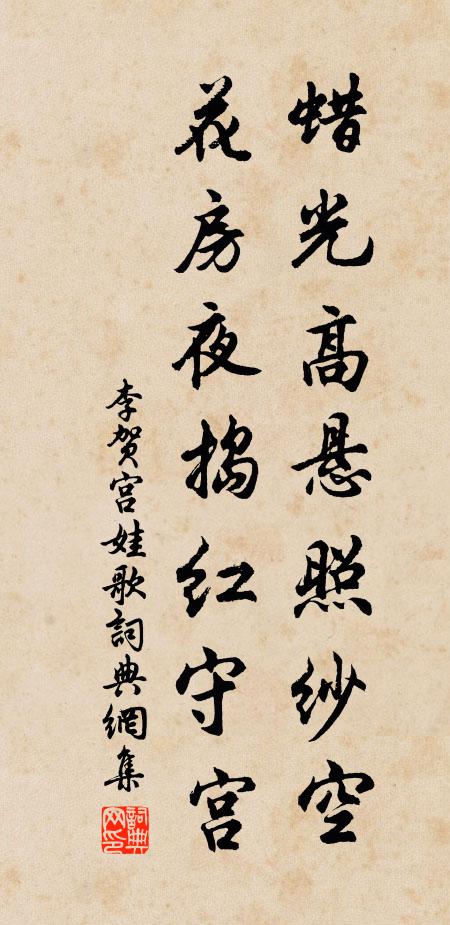 蜡光高悬照纱空
花房夜捣红守宫
李贺宫娃歌詞典網集
詞典网印